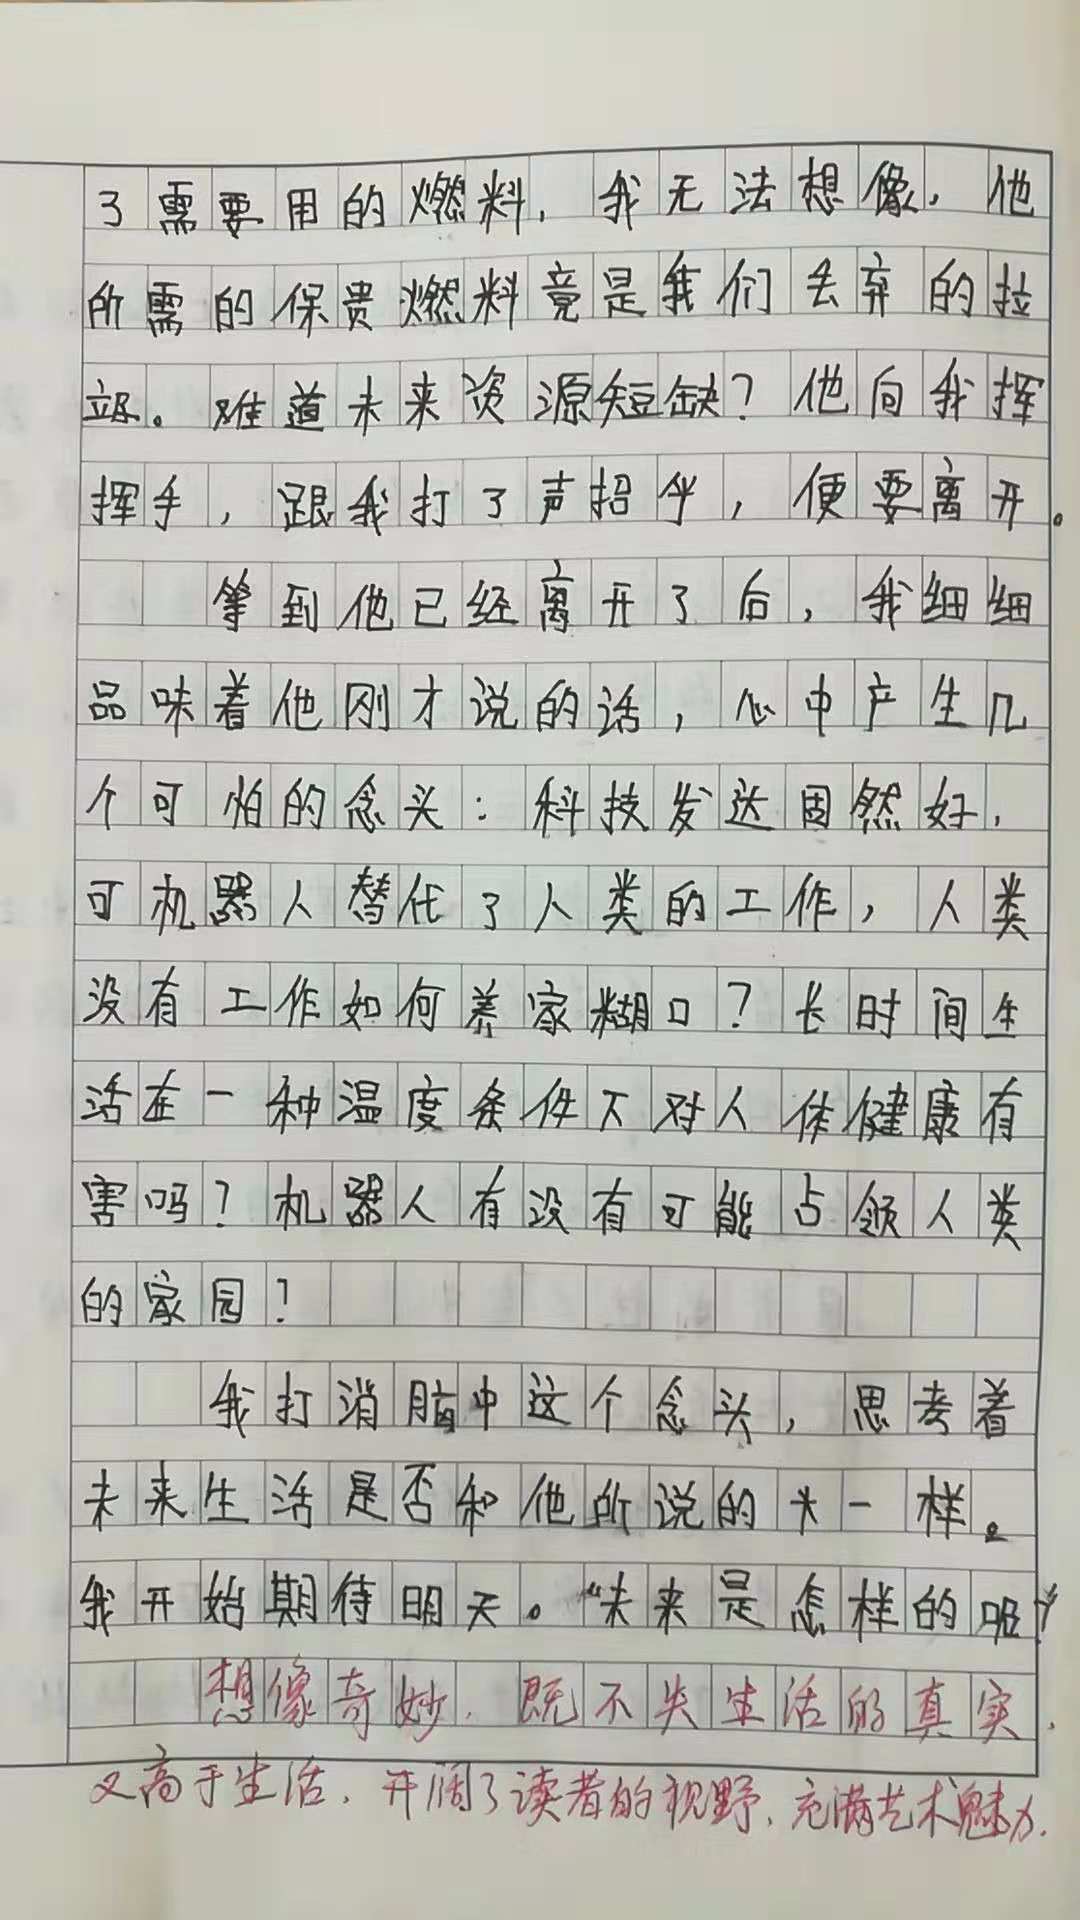 了需要用的燃料，我无法想像，他
所需的保贵燃料竟是我们丢弃的拉
圾。难道未来资源短缺？他向我挥
挥手，跟我打了声招乎，便要离开。
等到他已经离开了后，我细细
品味着他刚才说的话，心中产生几
个可怕的念头：科技发达固然好，
可机器人替代了人类的工作，人类
没有工作如何养家糊口？长时间生
活在一种温度条件下对人体健康有
害吗？机器人有没有可能占领人类
的家园？
我打消脑中这个念头，思考着
未来生活是否和他所说的一样。
我开始期待明天。“未来是怎样的呢？”
想像奇妙，既不失生活的真实，
又高于生活，开阔了读者的视野，充满艺术魅力。